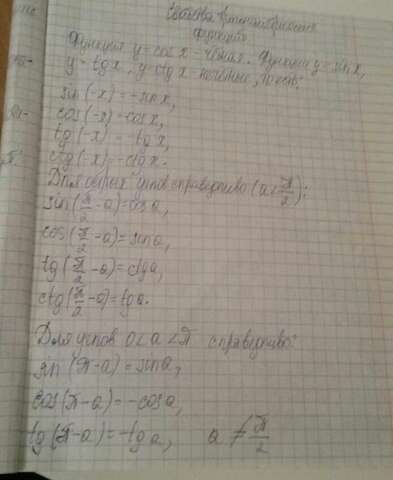 Свойства тригонометрических
функций
Функция y=cos x - чётная. Функции y=sin x,
y=tg x, y=ctg x нечётные, то есть:
sin(-x)=-sin x,
cos(-x)=cos x,
tg(-x)=-tg x,
ctg(-x)=-ctg x.
Для острых углов справедливо (a<π/2):
sin(π/2-a)=cos a,
cos(π/2-a)=sin a,
tg(π/2-a)=ctg a,
ctg(π/2-a)=tg a.
Для углов 0<a<π справедливо:
sin(π-a)=sin a,
cos(π-a)=-cos a,
tg(π-a)=-tg a, a≠π/2